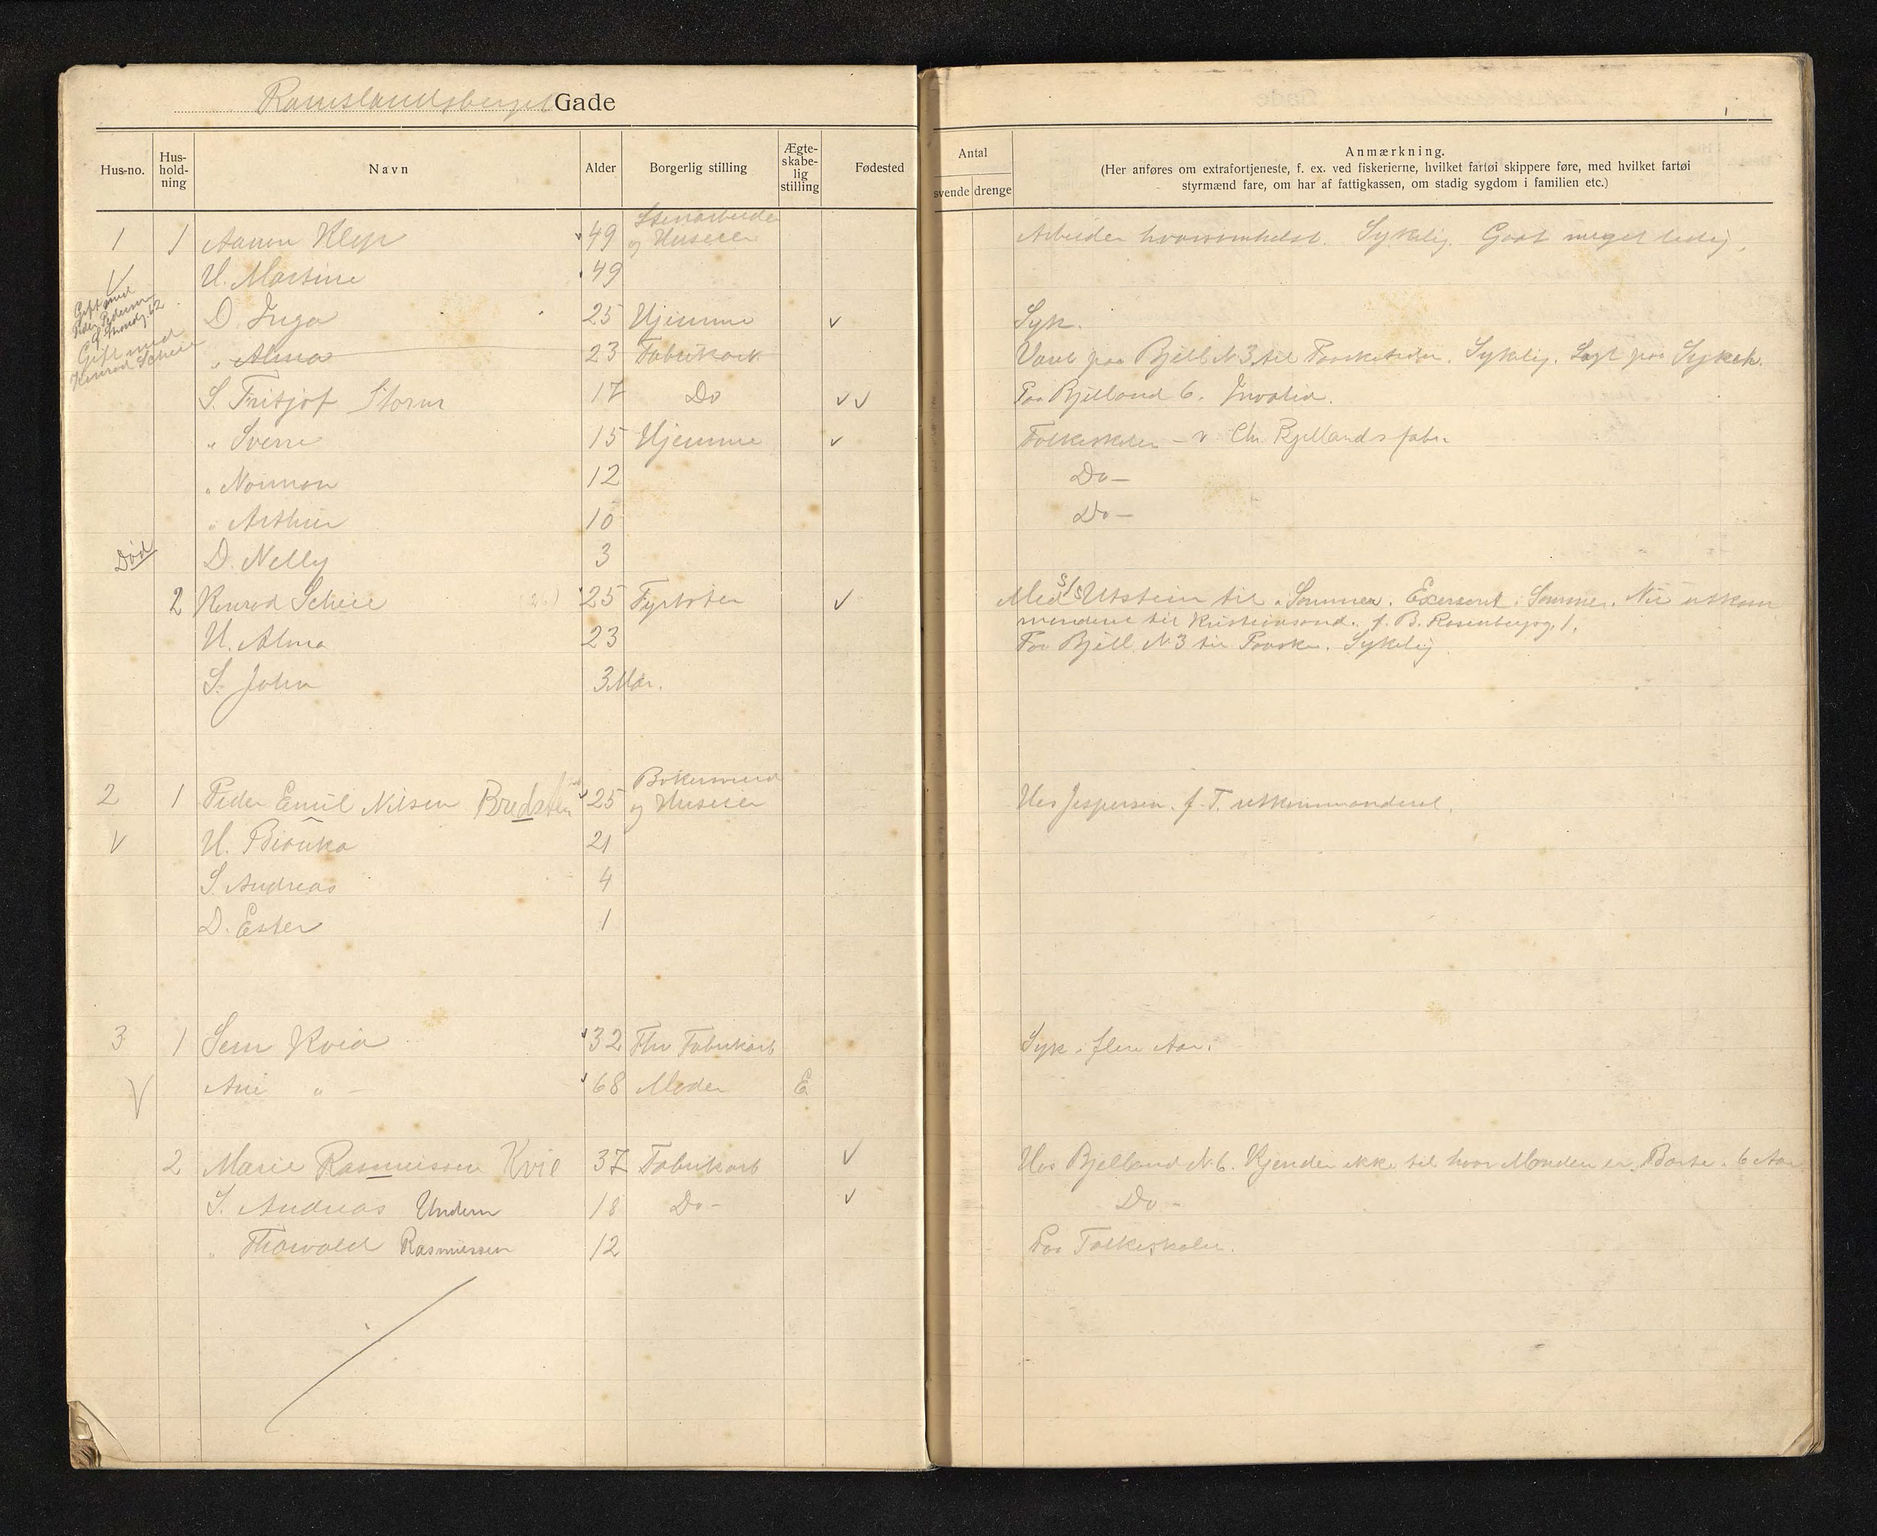 Ramslandsberget Gade
Hus-no. Hus-hold-ning Navn Alder Borgerlig stilling Ægte-skabe-lig stilling Fødested Antal svende drenge Anmærkning.
(Her anføres om extrafortjeneste, f. ex. ved fiskerierne, hvilket fartøi skippere føre, med hvilket fartøi
styrmænd fare, om har af fattigkassen, om stadig sygdom i familien etc.)
1 1 Aanon Klep 49 Stenarbeider og Huseier Arbeider hvorsomhelst. Sykelig. Gaat meget ledig.
H. Martine 49
Gift med Peder Pedersen 62
D. Inga 25 Hjemme Syk.
Gift med Konrad Scheie
" Alma 23 Fabrikarb Været paa Bjell N 3 til Paasketider. Sykelig. Sagt paa Sykeh.
S. Fritjof Storm 17 Do Paa Bjelland 6. Invalid.
" Sverre 15 Hjemme Folkeskolen - v Chr Bjellands fabr.
" Norman 12 Do -
" Arthur 10 Do -
Død D. Nelly 3
2 Konrad Scheie 25 Fyrbøter Med S/S Utstein til i Sommer. Exersert i Sommer. Nu utkom
menderet til Kristiansand. f. B. Rosenbergg. 1.
H. Alma 23 Paa Bjell. N 3 til Paaske. Sykelig
S. John 3 Mdr.
2 1 Peder Emil Nilsen Bredsten 25 Bakersvend og Huseier Hos Jespersen. f. T. utkommanderet.
H. Bianka 21
S. Andreas 4
D. Ester 1
3 1 Sem Kvia 32 Fhv Fabrikarb Syk i flere Aar.
Ane " - 68 Moder E
2 Marie Rasmussen Kvie 37 Fabrikarb Hos Bjelland N. 6. Kjender ikke til hvor Manden er. Borte i 6 Aar
S. Andreas Undem 18 Do - Do -
" Thorvald Rasmussen 12 Paa Folkeskolen.